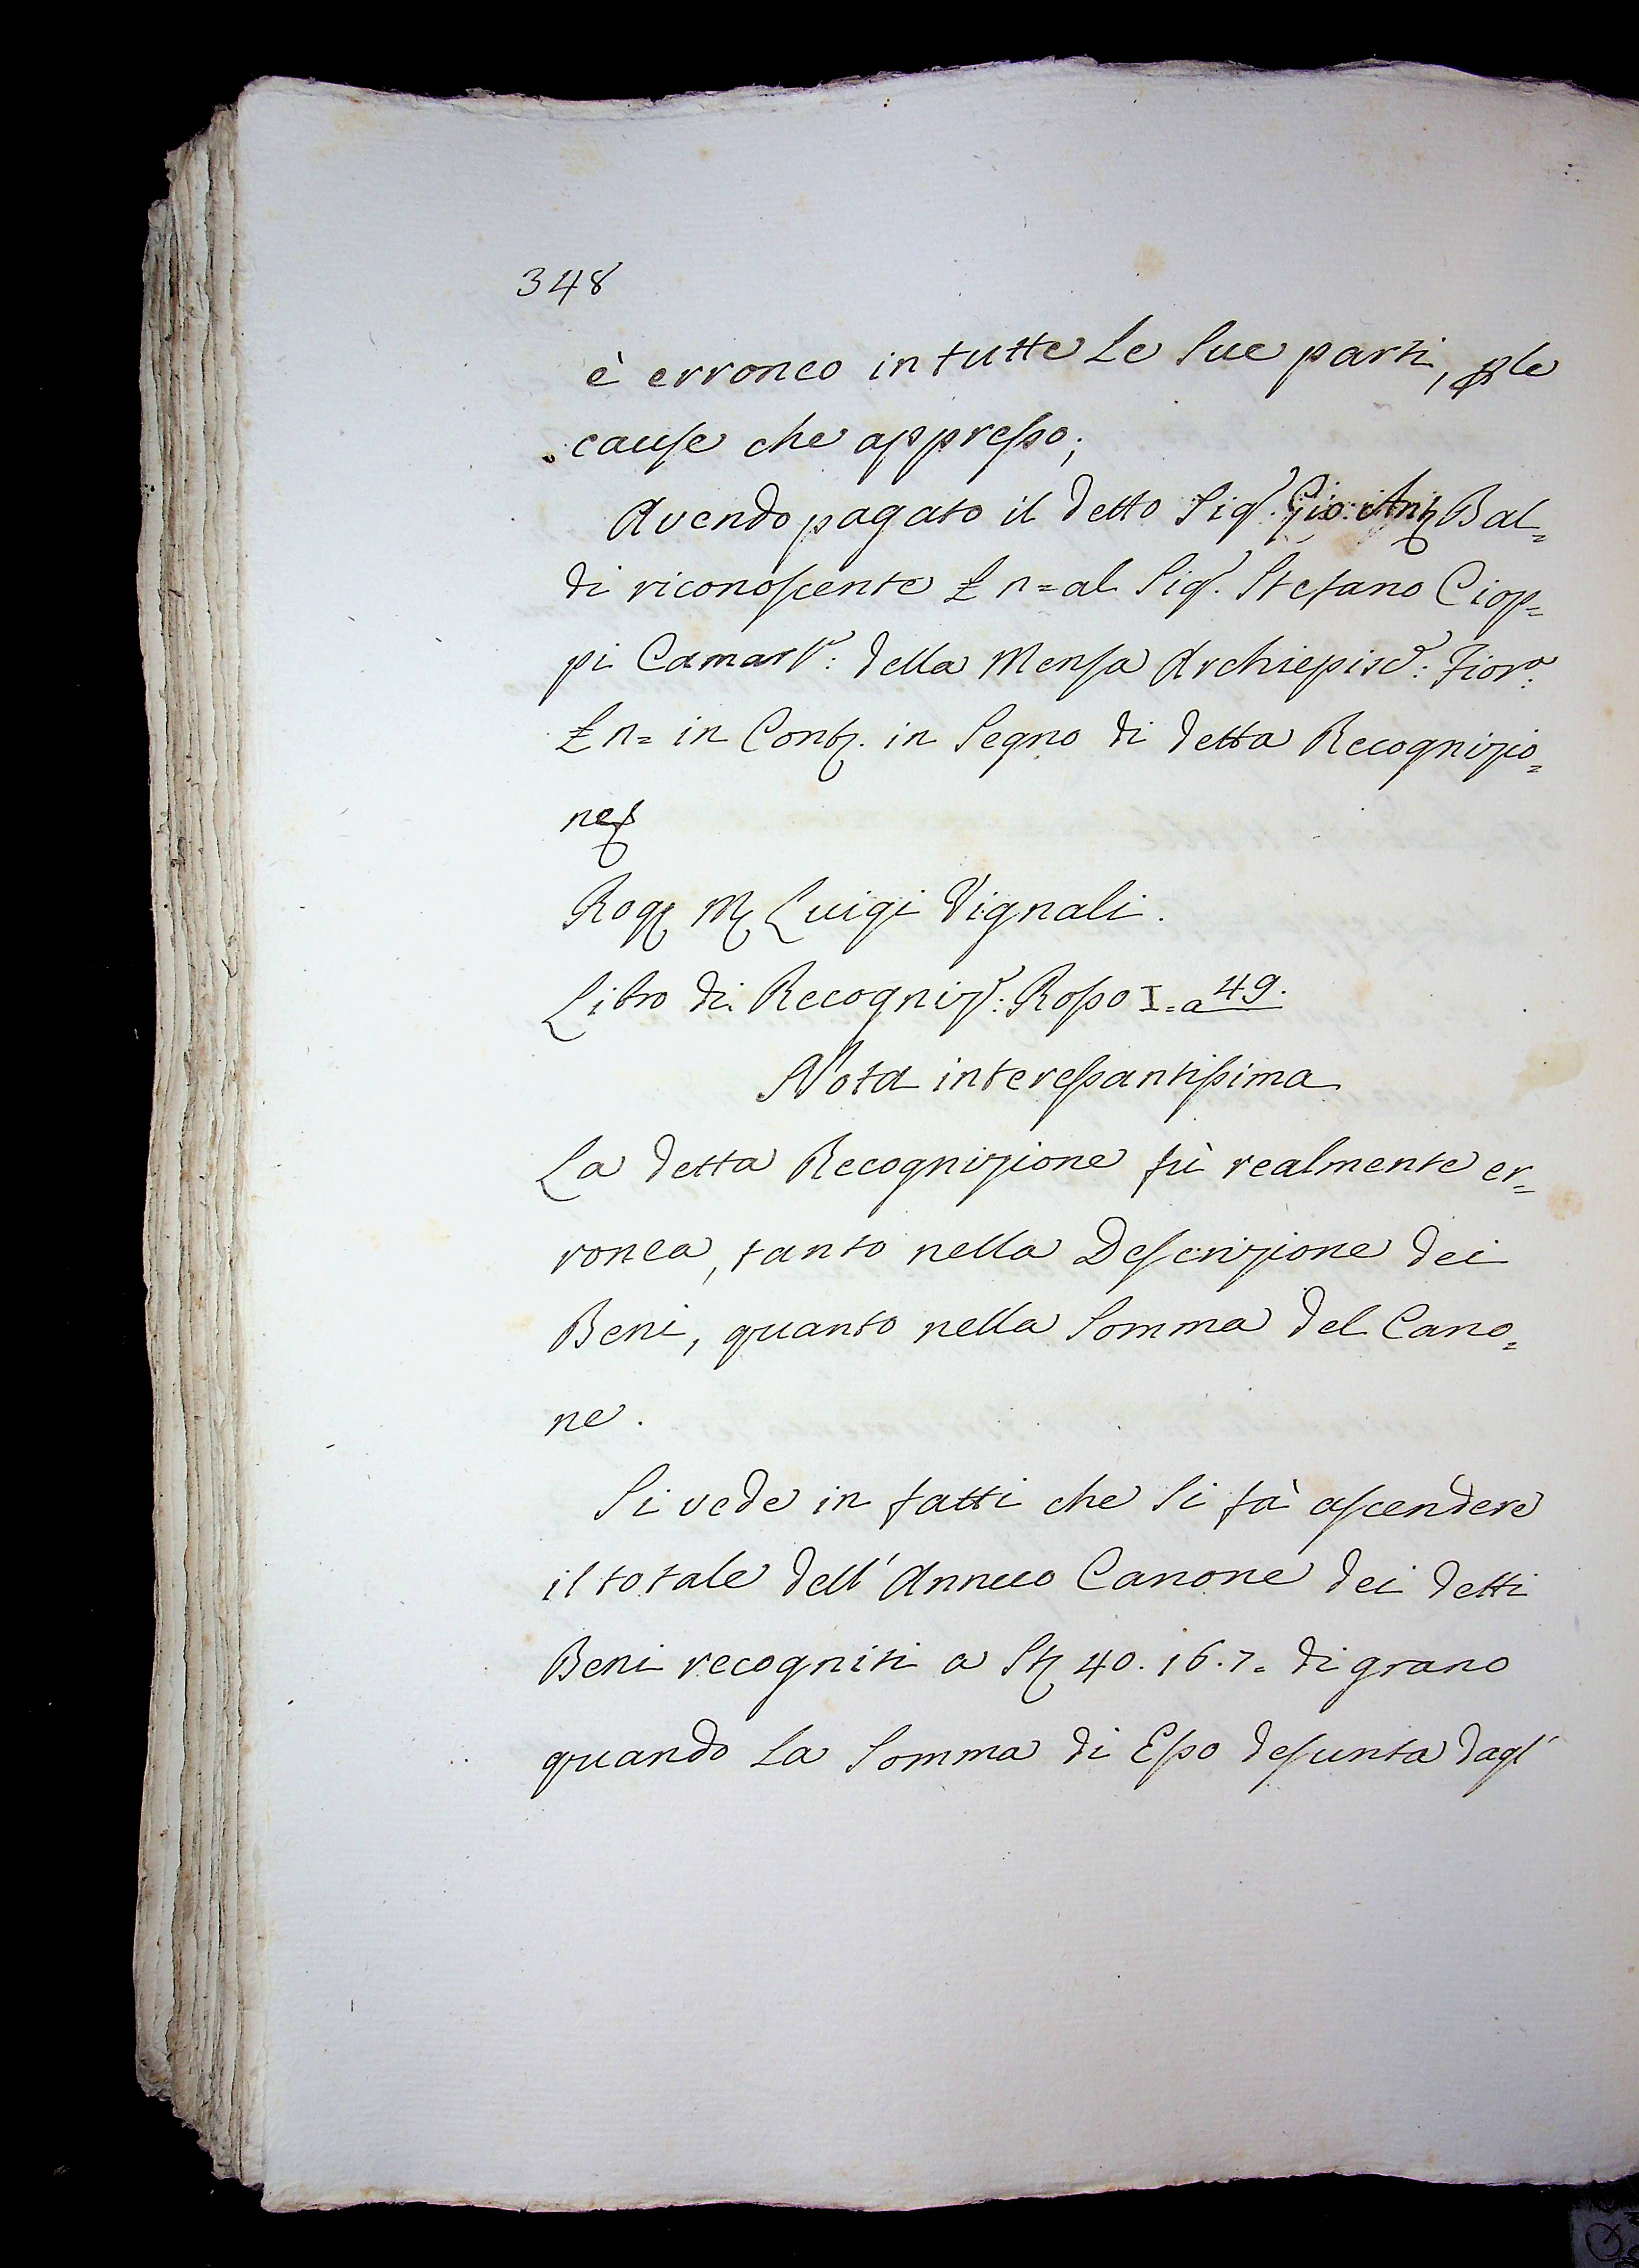 348
è erroneo in tutte Le Sue parti, ple
cause che appresso;
Avendo pagato il detto Sigr. Gio: Ant Bal=
di riconoscente £ n= al Sigr. Stefano Ciop=
pi Camarlo: della Mensa Archiepisc: Fiora:
£ n= in Cont. in Segno di detta Recognizio=
ne
Rog M Luigi Vignali.
Libro di Recogniz: Rosso I=a 49.
Nota interessantissima
La detta Recognizione fù realmente er=
ronea, tanto nella Descrizione dei
Beni, quanto nella Somma del Cano=
ne.
Si vede in fatti che Si fà ascendere
il totale dell'Annuo Canone dei detti
Beni recogniti a St 40. 16. 7= di grano
quando La Somma di Esso desunta dagl'